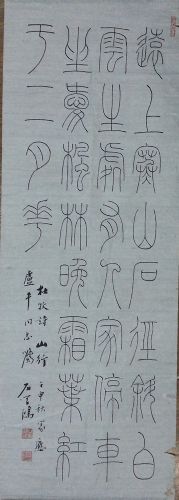 遠上寒山石徑斜白
雲生處有人家停車
坐愛楓林晚霜葉紅
于二月花
杜牧詩 山行 壬申秋
同志